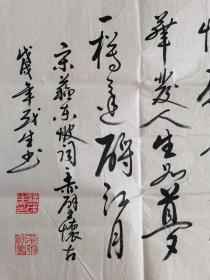 華發人生如夢
一樽還酹江月
宋蘇東坡詞赤壁懷古
戊戌年
書